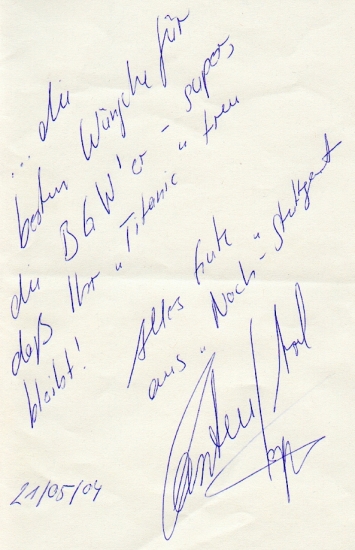 ... die
besten Wünsche für
die BGW'er - super,
daß Ihr "Titanic" treu
bleibt!
Alles Gute
aus "Noch"-Stuttgart
21/05/04